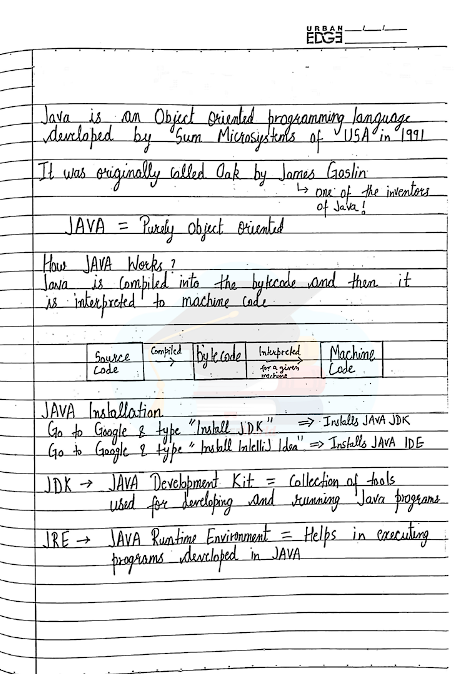 URBAN
EDGE
Java is an Object Oriented programming language
developed by Sum Microsystems of USA in 1991
It was originally called Oak by James Goslin
↳ one of the inventors
of Java!
JAVA = Purely object oriented
How JAVA Works?
Java is compiled into the bytecode and then it
is interpreted to machine code
Source Code
Compiled →
byte code
Interpreted → for a given machine
Machine Code
JAVA Installation
Go to Google & type "Install JDK" ⇒ Installs JAVA JDK
Go to Google & type "Install Intellij Idea" ⇒ Installs JAVA IDE
JDK → JAVA Development Kit = Collection of tools
used for developing and running Java programs
JRE → JAVA Runtime Environment = Helps in executing
programs developed in JAVA